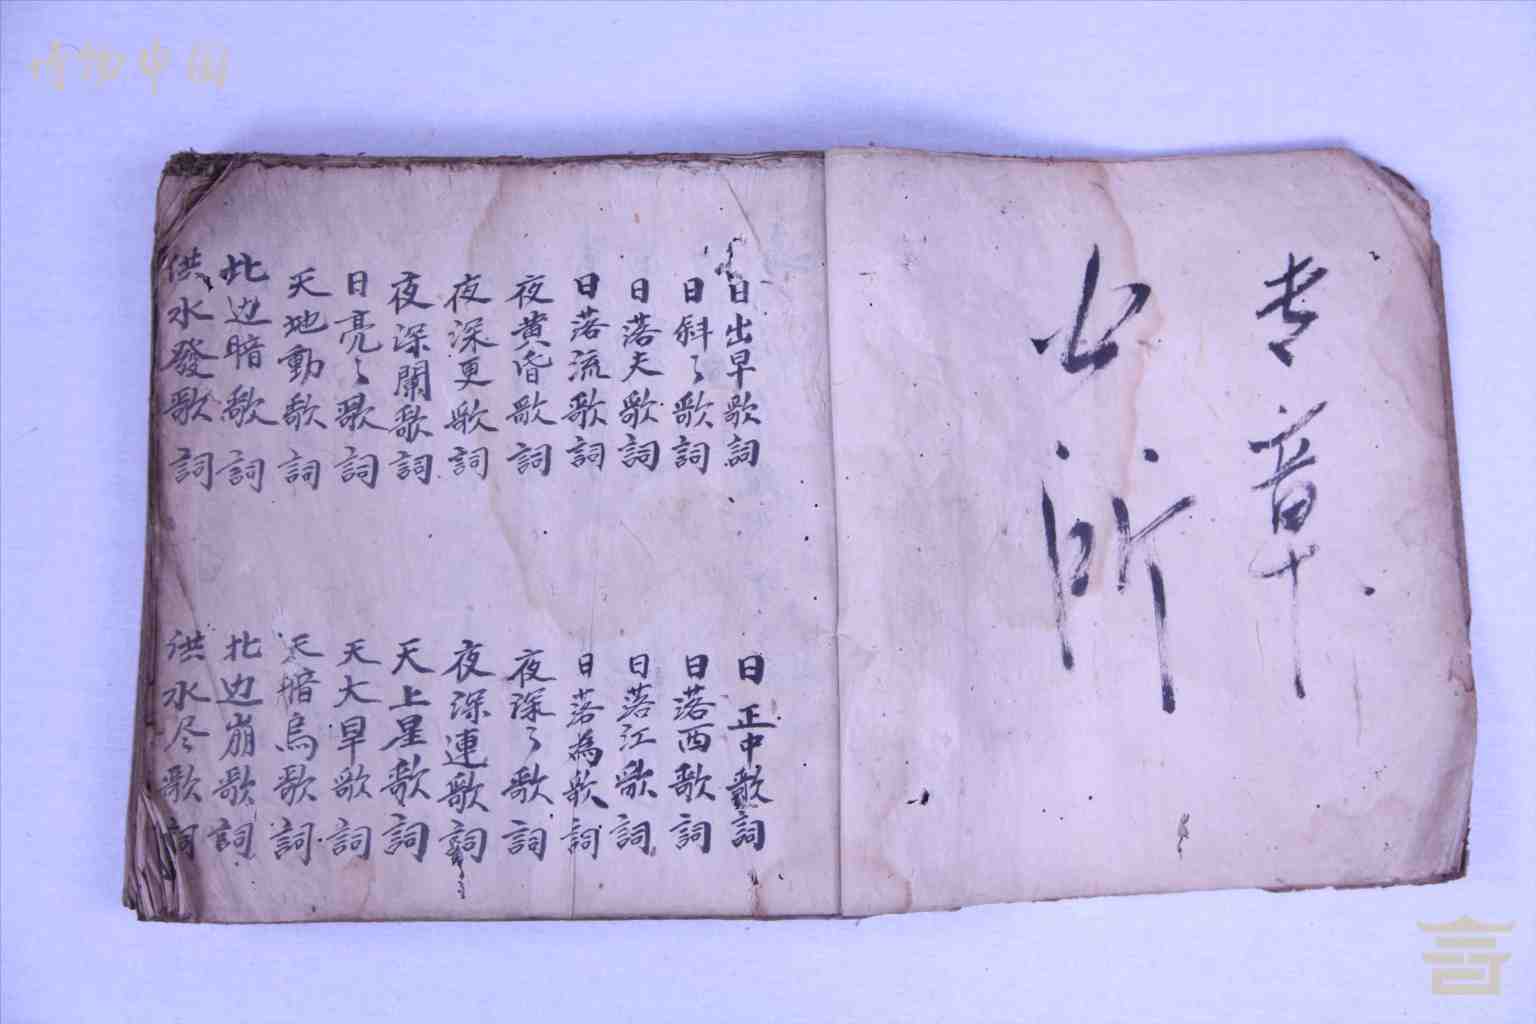 博物中国
章
所
日出早歌詞
日正中歌詞
日斜々歌詞
日落西歌詞
日落夫歌詞
日落江歌詞
日落流歌詞
日落為歌詞
夜黄昏歌詞
夜深々歌詞
夜深更歌詞
夜深連歌詞
夜深闌歌詞
天上星歌詞
日亮々歌詞
天大旱歌詞
天地動歌詞
天暗烏歌詞
北边暗歌詞
北边崩歌詞
洪水發歌詞
洪水尽歌詞